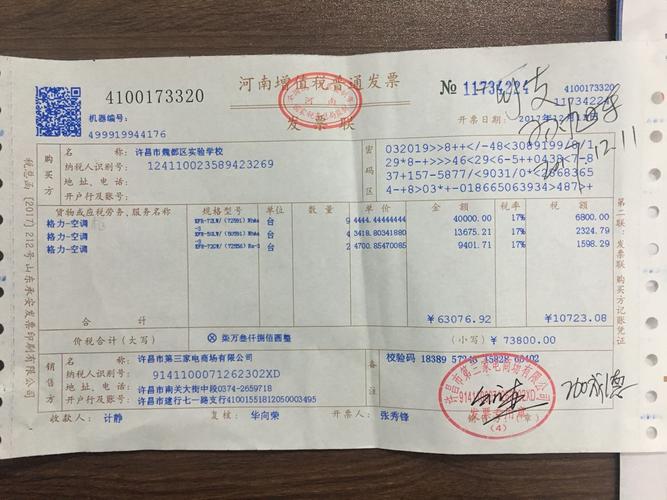 河南增值税普通发票
河南
发票联
4100173320
№ 11734224
4100173320
11734224
机器编号:
499919944176
开票日期: 2017年12月
购买方
名称: 许昌市魏都区实验学校
纳税人识别号: 124110023589423269
地址、电话:
开户行及账号:
密码区
货物或应税劳务、服务名称 规格型号 单位 数量 单价 金额 税率 税额
格力-空调 台 9 4444.44444444 40000.00 17% 6800.00
格力-空调 台 4 3418.80341880 13675.21 17% 2324.79
格力-空调 台 2 4700.85470085 9401.71 17% 1598.29
合计 ¥63076.92 ¥10723.08
价税合计(大写) ⊗柒万叁仟捌佰圆整 (小写) ¥73800.00
销售方
名称: 许昌市第三家电商场有限公司
纳税人识别号: 9141100071262302XD
地址、电话: 许昌市南关大街中段0374-2659718
开户行及账号: 许昌市建行七一路支行41001551812050003495
备注
校验码 18389 57246 15828 66402
收款人: 计静 复核: 华向荣 开票人: 张秀锋
许昌市第三家电商场有限公司
9141100071262302XD
发票专用章
(4)
第二联:发票联 购买方记账凭证
税总函〔2017〕212号山东承安发票印刷有限公司
12.11